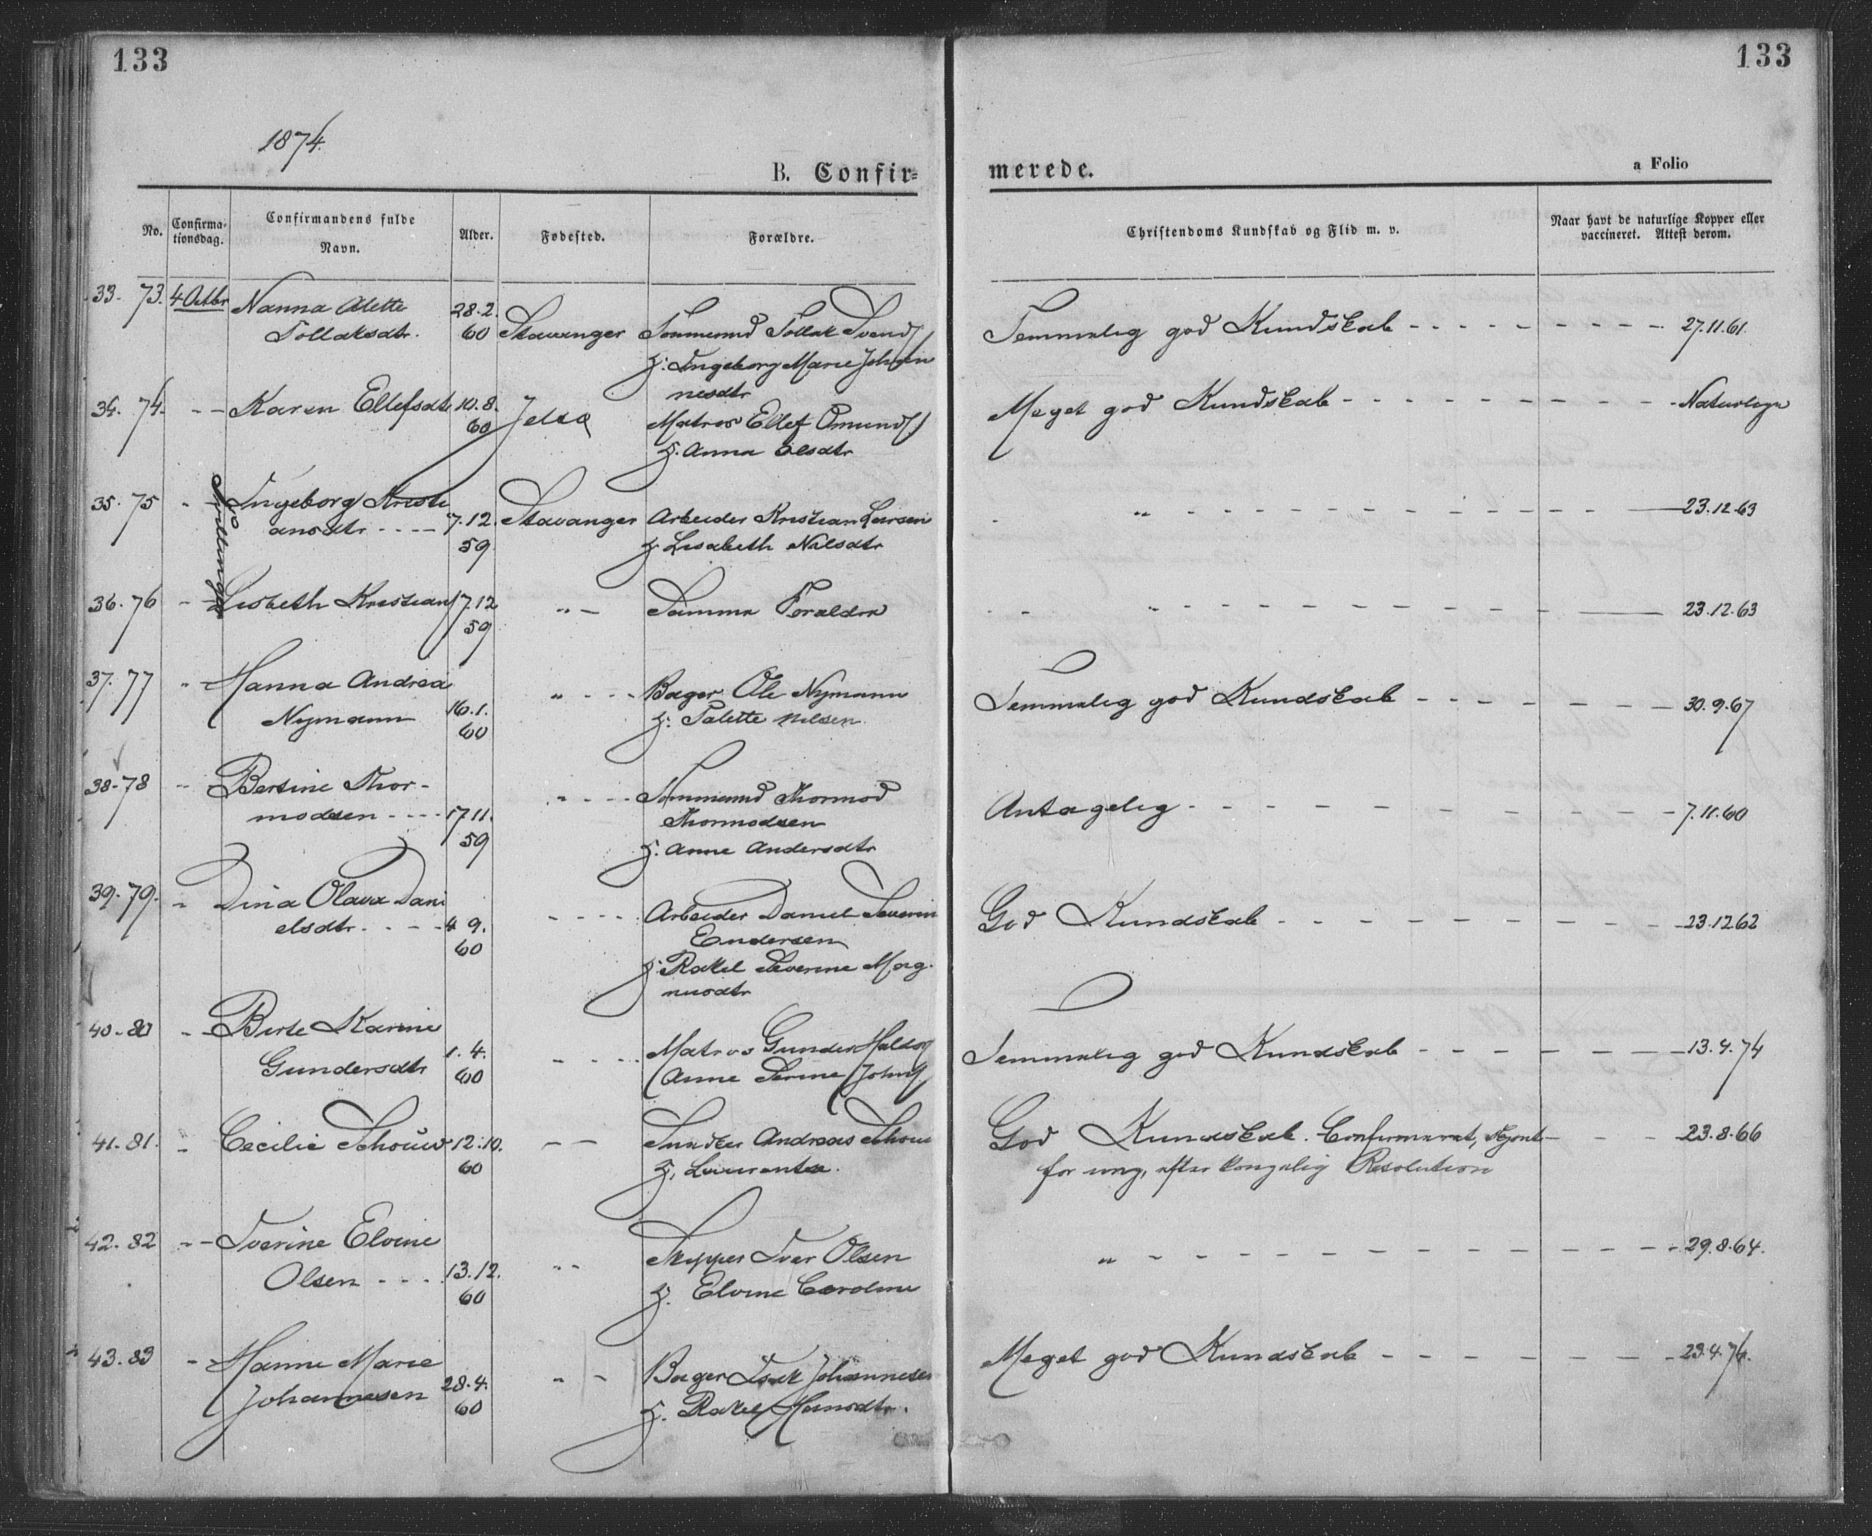 133
133
1874.
B. Confir=
merede.
a Folio
No.
Confirma-
tionsdag.
Confirmandens fulde
Navn.
Alder.
Fødested.
Forældre.
Christendoms Kundskab og Flid m. v.
Naar havt de naturlige Kopper eller
vaccineret. Attest derom.
33. 73. 4 Octbr Nanna Alette 28.2.
Tollaksdtr. 60 Stavanger Tømmermd Tollak Svends
H: Ingeborg Marie Johan
nesdtr
Temmelig god Kundskab - - - 27.11.61.
34. 74. - - Karen Ellefsdtr 10.8.
60 Jelsa Matros Ellef Omunds
H. Anna Olsdtr
Meget god Kundskab - - - Naturlige
35. 75 " Ingeborg Kristi
ansdtr - - - 7.12.
59 Stavanger Arbeider Kristian Larsen
H. Lisabeth Nilsdtr
" - - - 23.12.63
Tvillinger
36. 76 - Lisbeth Kristians 7.12
59 " - Samme Forældre
" - - - 23.12.63
37. 77 " Hanna Andrea
Nymann 16.1.
60 " - - - Bager Ole Nymann
H. Talette Nilsen
Temmelig god Kundskab - - - 30.9.67
38-78 - Bertine Thor-
modsen - - - 17.11.
59 " - - - Tømmermd Thormod
Thormodsen
H. Anne Andersdtr
Antagelig - - - 7.11.60
39. 79. " Dina Olava Dani
elsdtr. - - - 4 9.
60 - - - Arbeider Daniel Severin
Endersen
H. Rakel Severine Mag-
nusdtr
God Kundskab - - - 23.12 62
40-80 - - Berte Karine
Gundersdtr 1. 4.
60 - - - Matros Gunder
Anne Serine Johns
Temmelig god Kundskab - - - 13.4.74
41. 81. " Cecilie Schouw 12.10.
60 - - Andreas Schouw
H. Laurentze.
God Kundskab. Confirmeret, skjønt - - 23.8.66
for ung, efter kongelig Resolution
42. 82 - - Iverine Elvine
Olsen - - - 13.12.
60 " - Skipper Iver Olsen
H. Elvine Caroline
" - - - 29.8.64.
43. 83 - Hanne Marie
Johannesen 28.4.
60 " - Bager Isak Johannesen
H. Rakel Hansdtr.
Meget god Kundskab - - - 23.4.74.